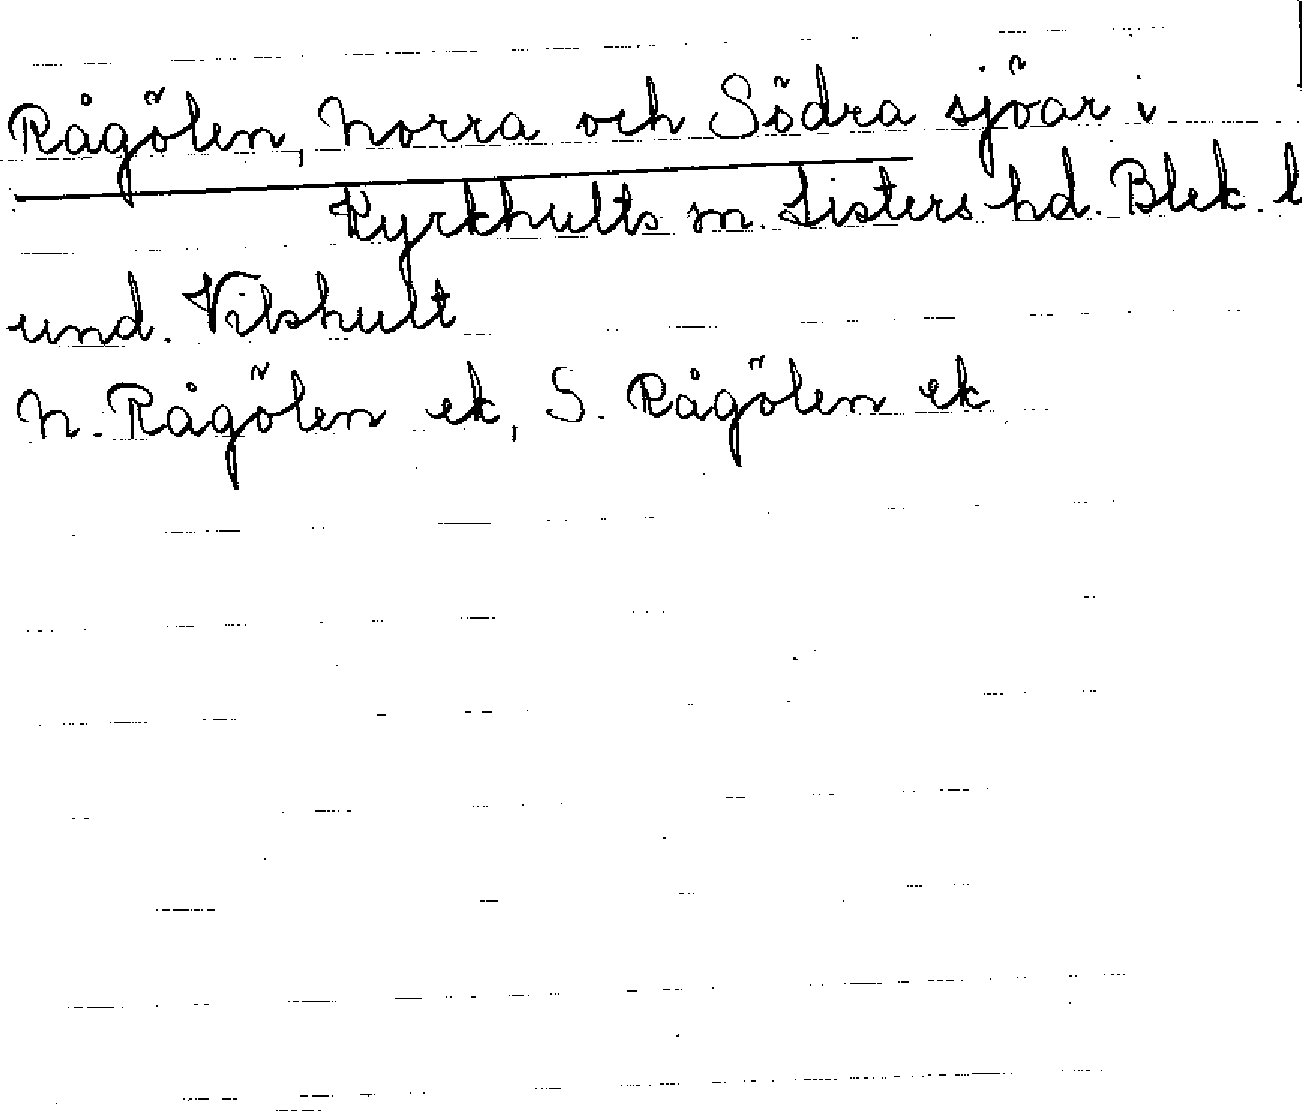 Rågölen, Norra och Södra sjöar i
Kyrkhults sn. Listers hd. Blek. l
und. Vilshult
N. Rågölen ek, S. Rågölen ek